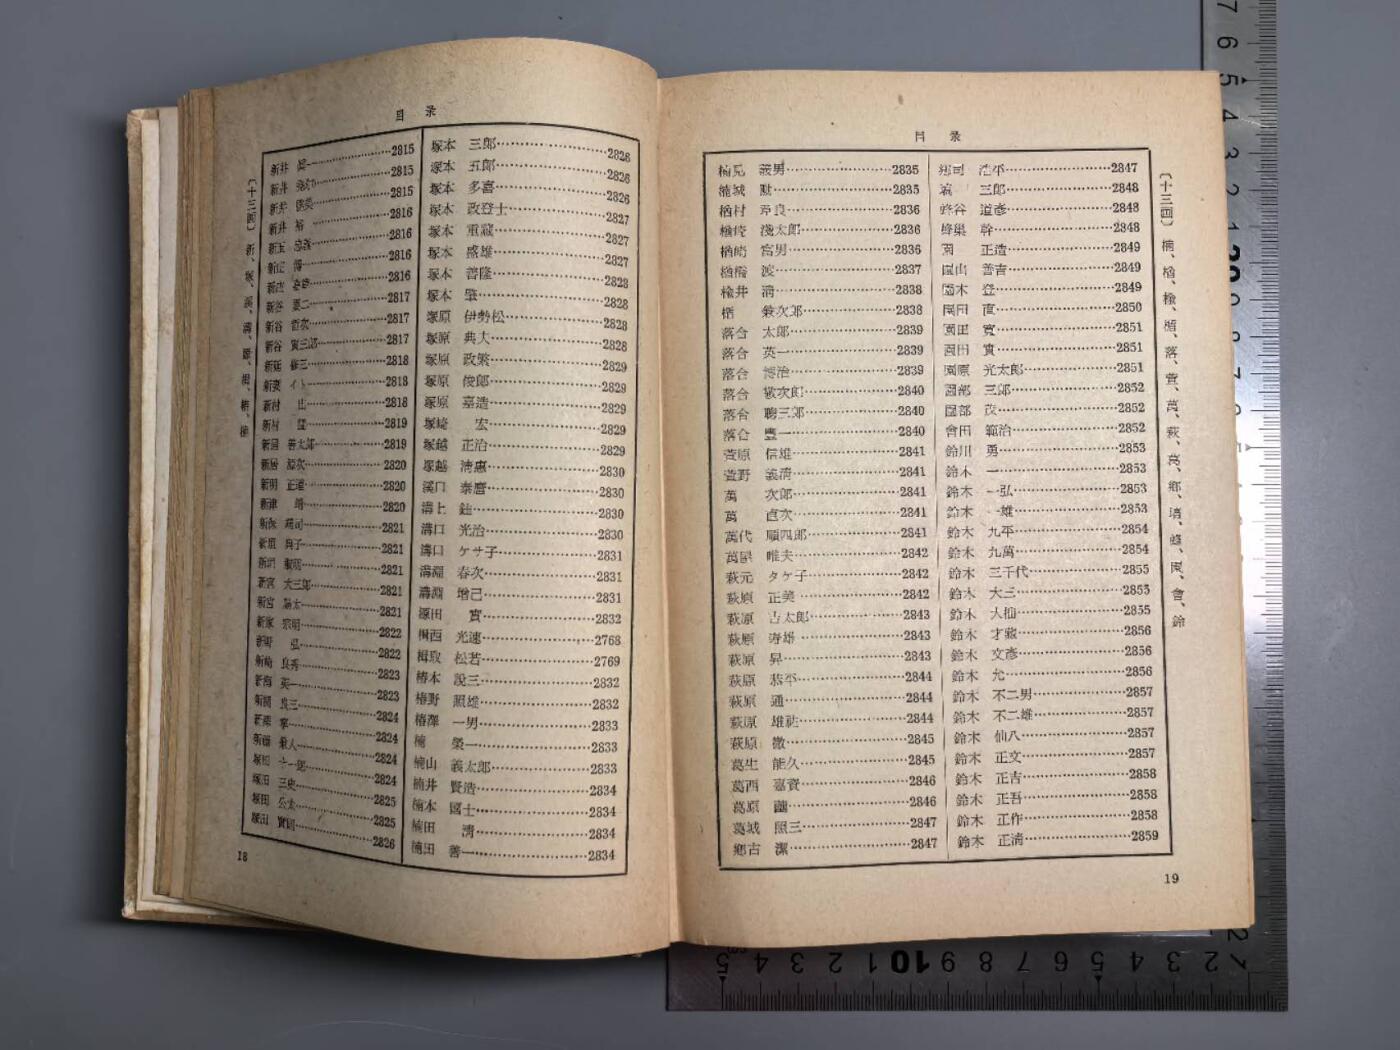 目 录
〔十三囬〕 新、塚、溪、溝、源、楫、椿、楠
新井 ……2815
新井 ……2815
新井 ……2815
新井 裕……2816
新玉 ……2816
新庄 ……2816
新庄 ……2816
新谷 要二……2817
新谷 哲次……2817
新谷 寅三郎……2817
新庭 修三……2818
新妻 イト……2818
新村 出……2818
新村 ……2819
新居 善太郎……2819
新居 ……2820
新明 正道……2820
新津 靖……2820
新飯 ……2821
新垣 ……2821
新垣 ……2821
新宮 大三郎……2821
新宮 ……2821
新家 宗明……2822
新野 弘……2822
新崎 良秀……2823
新海 英一……2823
新關 良三……2824
新藤 ……2824
新藤 兼人……2824
塚田 十一郎……2824
塚田 三史……2825
塚田 公太……2825
塚田 ……2826
塚本 三郎……2826
塚本 五郎……2826
塚本 多喜……2826
塚本 政登士……2827
塚本 重蔵……2827
塚本 盛雄……2827
塚本 善隆……2828
塚本 肇……2828
塚原 伊勢松……2828
塚原 典夫……2828
塚原 政繁……2829
塚原 俊郎……2829
塚原 嘉造……2829
塚崎 宏……2829
塚越 正治……2829
塚越 清惠……2830
溪口 泰麿……2830
溝上 銈……2830
溝口 光治……2830
溝口 ケサ子……2831
溝淵 春次……2831
溝淵 增己……2831
源田 實……2832
楫西 光速……2768
楫取 松若……2769
椿本 說三……2832
椿野 照雄……2832
椿澤 一男……2833
楠 榮一……2833
楠山 義太郎……2833
楠井 賢造……2834
楠本 國士……2834
楠田 清……2834
楠田 善一……2834
18
目 录
楠見 義男……2835
楠城 勣……2835
楢村 ……2836
楢崎 淺太郎……2836
楢崎 富男……2836
楢橋 渡……2837
楡井 清……2838
楯 兼次郎……2838
落合 太郎……2839
落合 英一……2839
落合 博治……2839
落合 敬次郎……2840
落合 聰三郎……2840
落合 豊一……2840
萱原 信雄……2841
萱野 義清……2841
萬 次郎……2841
萬 直次……2841
萬代 順四郎……2841
萬屋 唯夫……2842
萩元 タケ子……2842
萩原 正美……2842
萩原 吉太郎……2843
萩原 寿雄……2843
萩原 昇……2843
萩原 恭平……2844
萩原 通……2844
萩原 雄祐……2844
萩原 徹……2845
葛生 能久……2845
葛西 嘉資……2846
葛原 齒……2846
葛城 照三……2847
鄉古 潔……2847
鄉司 浩平……2847
塙 三郎……2848
蜂谷 道彥……2848
蜂巢 幹……2848
園 正造……2849
園山 善吉……2849
園木 登……2849
園田 直……2850
園田 寬……2851
園田 實……2851
園原 光太郎……2851
園部 三郎……2852
園部 茂……2852
會田 範治……2852
鈴川 勇……2853
鈴木 一……2853
鈴木 一弘……2853
鈴木 一雄……2853
鈴木 九平……2854
鈴木 九萬……2854
鈴木 三千代……2855
鈴木 大三……2855
鈴木 大仙……2855
鈴木 才藏……2856
鈴木 文彥……2856
鈴木 允……2856
鈴木 不二男……2857
鈴木 不二雄……2857
鈴木 仙八……2857
鈴木 正文……2857
鈴木 正吉……2858
鈴木 正吾……2858
鈴木 正作……2858
鈴木 正清……2859
〔十三囬〕 楠、楢、楡、楯、落、萱、萬、萩、葛、鄉、塙、蜂、園、會、鈴
19